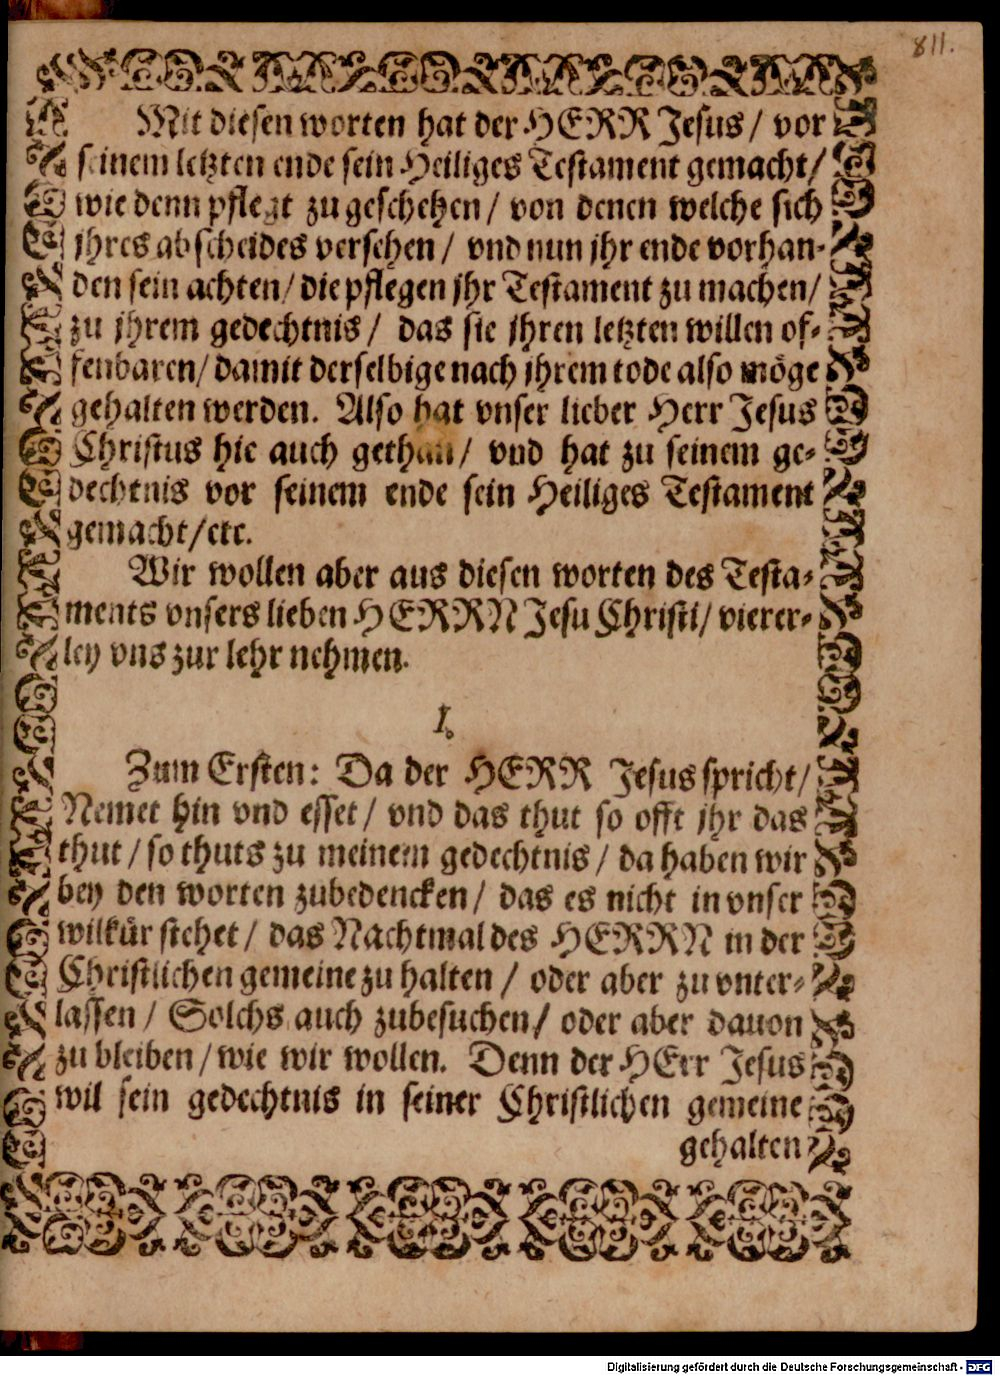 811.
Mit diesen worten hat der HERR Jesus / vor
seinem letzten ende sein Heiliges Testament gemacht /
wie denn pflegt zu geschehen / von denen welche sich
jhres abscheides versehen / vnd nun jhr ende vorhan-
den sein achten / die pflegen jhr Testament zu machen /
zu jhrem gedechtnis / das sie jhren letzten willen of-
fenbaren / damit derselbige nach jhrem tode also möge
gehalten werden. Also hat vnser lieber Herr Jesus
Christus hie auch gethan / vnd hat zu seinem ge-
dechtnis vor seinem ende sein Heiliges Testament
gemacht / etc.
Wir wollen aber aus diesen worten des Testa-
ments vnsers lieben HERRN Jesu Christi / vierer-
ley vns zur lehr nehmen.
I.
Zum Ersten: Da der HERR Jesus spricht /
Nemet hin vnd esset / vnd das thut so offt jhr das
thut / so thuts zu meinem gedechtnis / da haben wir
bey den worten zubedencken / das es nicht in vnser
wilkür stehet / das Nachtmal des HERRN in der
Christlichen gemeine zu halten / oder aber zu vnter-
lassen / Solchs auch zubesuchen / oder aber dauon
zu bleiben / wie wir wollen. Denn der HErr Jesus
wil sein gedechtnis in seiner Christlichen gemeine
gehalten
Digitalisierung gefördert durch die Deutsche Forschungsgemeinschaft - DFG